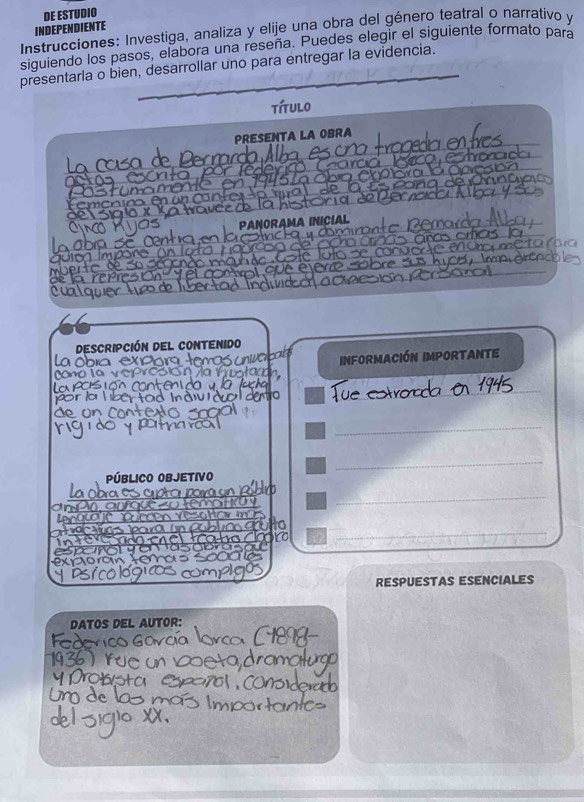 DE ESTUDIO
INDEPENDIENTE
Instrucciones: Investiga, analiza y elije una obra del género teatral o narrativo y
siguiendo los pasos, elabora una reseña. Puedes elegir el siguiente formato para
presentarla o bien, desarrollar uno para entregar la evidencia.
TÍTULO
PRESENTA LA OBRA
La casa de Bernarda Alba, es una tragedia en tres
actos escrita por Federico Garcia lorca, estrenada
Postumamente en 1945 La obra explora la opresion
femenina en un contexto rural de la España de principios
del siglo x x a travez de la historia de Bernarda Alba y sus
cinco Hijas
PANORAMA INICIAL
La obra se centra en la estricta y dominante Bernarda Alba,
quien impone un luto riguroso de ocho años a sus hijas la
muerte de su segundo marido. Este luto se convierte en una metafora
de la represion y el control que ejerce sobre sus hijas, impidiendoles
cualquier tipo de libertad individual o expresion personal
DESCRIPCIÓN DEL CONTENIDO
La obra explora temas universales
como la represion, la frustracion,
La pasion contenida y la lucha
por la libertad individual dentro
de un contexto social
rigido y patriarcal
INFORMACIÓN IMPORTANTE
Fue estrenada en 1945
PÚBLICO OBJETIVO
La obra es apta para un público
amplio aunque su tematica y
lenguaje pueden resultar mas
atractivos para un publico adulto
interesado en el teatro clasico
español y en las obras que
exploran temas sociales
y psicologicos complejos
RESPUESTAS ESENCIALES
DATOS DEL AUTOR:
Federico Garcia lorca (1898-
1936) fue un poeta, dramaturgo
y prosista español, considerado
uno de los mas importantes
del siglo XX.